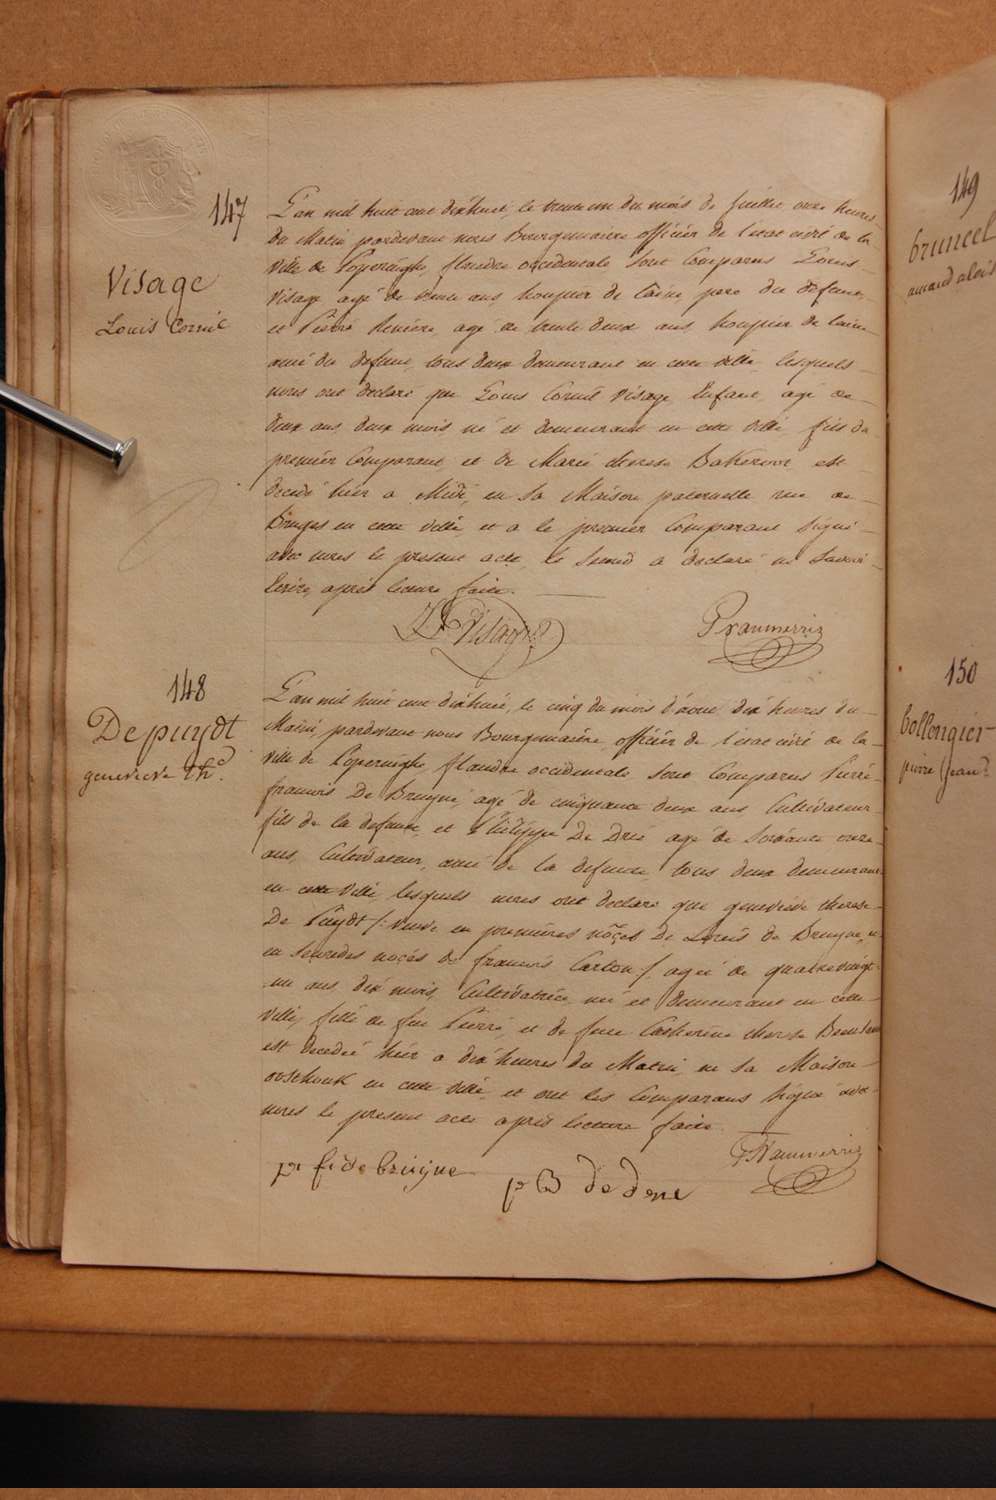 147
Visage
Louis Cornil
L'an mil huit cent dixhuit, le trente un du mois de Juillet onze heures
du Matin pardevant nous Bourguemaitre officiér de l'etat civil de la
ville de Poperinghe, flandre occidentale sont Comparus Louis
Visage agé de trente ans houpier de laine, pere du defunt,
et Pierre agé de trente deux ans houpier de laine
ami du defunt, tous deux demeurant en cette ville, lesquels
nous ont declaré que Louis Cornil Visage Enfant, agé de
deux ans deux mois né et demeurant en cette ville fils du
premiér Comparant et de Marie therese est
decedé hier a Midi, en sa Maison paternelle rue de
Bruges en cette ville, et a le premier Comparant signé
avec nous le present acte, le second a declaré ne savoir
Ecrire, après lecture faite.
L Visage
148
De puydt
genevieve Th.e
L'an mil huit cent dixhuit, le cinq du mois d'aout dix heures du
Matin, pardevant nous Bourguemaitre officiér de l'etat civil de la
ville de Poperinghe, flandre occidentale sont Comparus Pierre
francois De Bruyne, agé de cinquante deux ans Cultivateur
fils de la defunte, et Philippe De agé de soixante onze
ans, Cultivateur, ami de la defunte, tous deux demeurant
en cette ville, lesquels nous ont declaré que genevieve therese
De Puydt /: veuve en premiéres noçes de Louis de Bruyne, et
en secondes noçes de francois Carton :/ agée de quatrevingt
un ans, dix mois, Cultivatrice née et demeurant en cette
ville, fille de feu Pierre, et de feue Catherine therese
est decedée hier a dix heures du Matin, en sa Maison
oosthouk en cette ville, et ont les Comparans signé avec
nous le present acte après lecture faite.
pr fr de bruyne
149
bruneel
amand alois
150
bollengier
pierre Jean